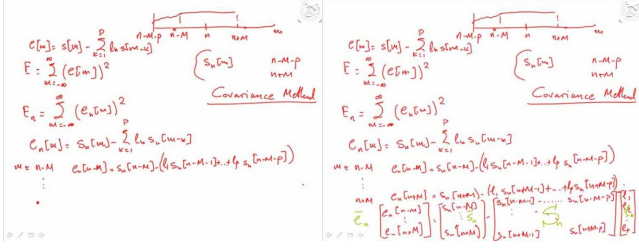 n-M-p n-M n n+M m
e[m] = s[m] - ∑_{k=1}^{p} l_k s[m-k]
E = ∑_{m=-∞}^{∞} (e[m])^2
{ s_n[m] n-M-p
n+M
Covariance Method
E_n = ∑_{m=-∞}^{∞} (e_n[m])^2
e_n[m] = s_n[m] - ∑_{k=1}^{p} l_k s_n[m-k]
m = n-M e_n[n-M] = s_n[n-M] - (l_1 s_n[n-M-1] + ... + l_p s_n[n-M-p])
⋮
n-M-p n-M n n+M m
e[m] = s[m] - ∑_{k=1}^{p} l_k s[m-k]
E = ∑_{m=-∞}^{∞} (e[m])^2
{ s_n[m] n-M-p
n+M
Covariance Method
E_n = ∑_{m=-∞}^{∞} (e_n[m])^2
e_n[m] = s_n[m] - ∑_{k=1}^{p} l_k s_n[m-k]
m = n-M e_n[n-M] = s_n[n-M] - (l_1 s_n[n-M-1] + ... + l_p s_n[n-M-p])
⋮
n+M e_n[n+M] = s_n[n+M] - (l_1 s_n[n+M-1] + ... + l_p s_n[n+M-p])
e_n [e_n[n-M] = [s_n[n-M] - [s_n[n-M-1] ...... s_n[n-M-p] [l_1
⋮ ⋮ s_n ⋮ S_n
e_n[n+M]] s_n[n+M]] s_n[n+M-1] s_n[n+M-p]] l_p]